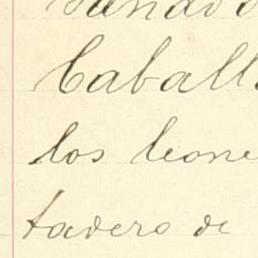 Caball
los leone
tadero de